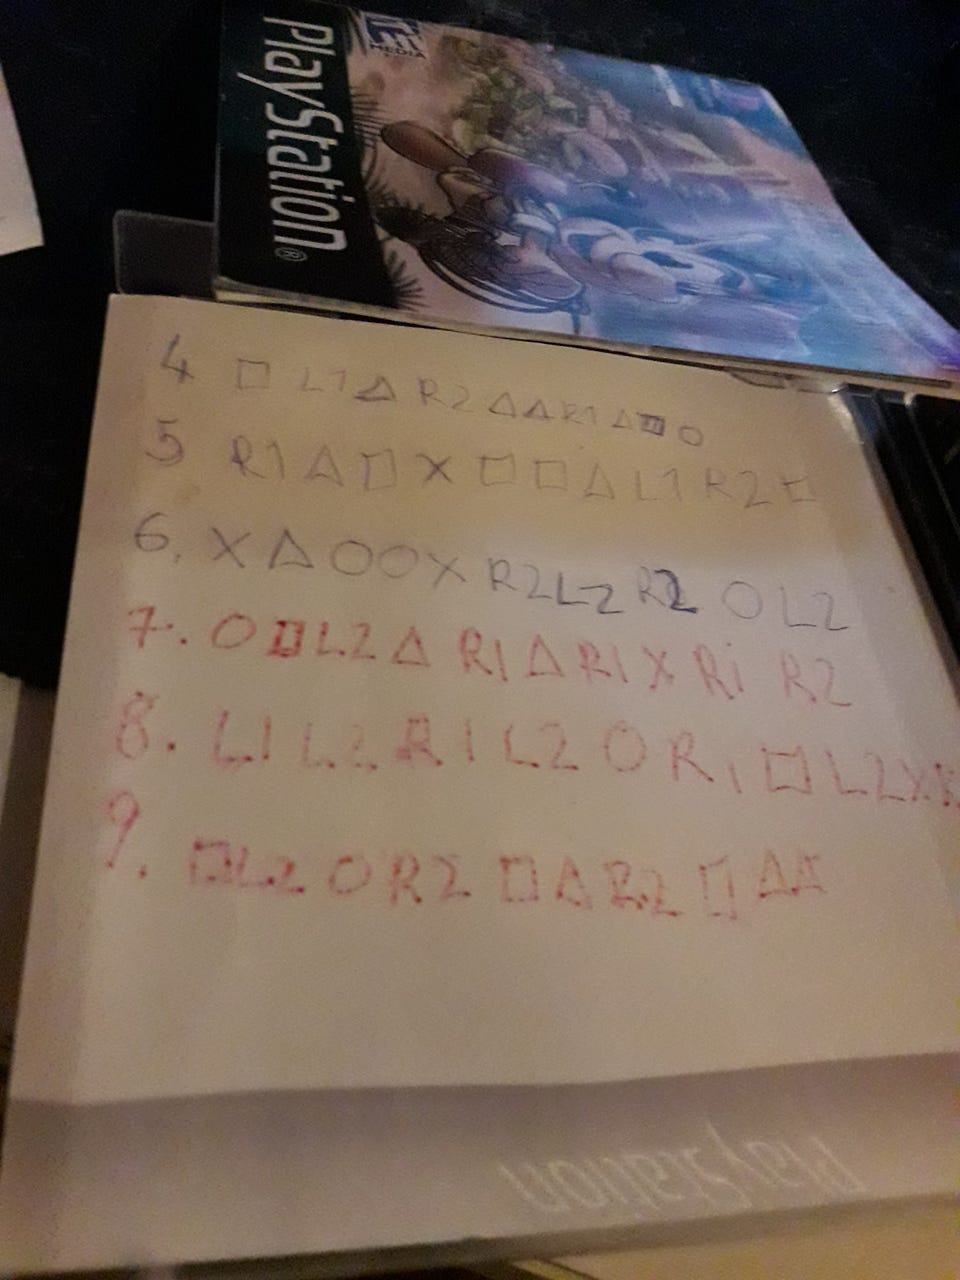 PlayStation®
MEDIA
4 □ L1 △ R2 △ △ R1 △ □ O
5 R1 △ □ X □ □ △ L1 R2 □
6. X △ O O X R2 L2 R2 O L2
7. O □ L2 △ R1 △ R1 X R1 R2
8. L1 L2 R1 L2 O R1 □ L2 X
9. □ L2 O R2 □ △ R2 □ △ △
PlayStation